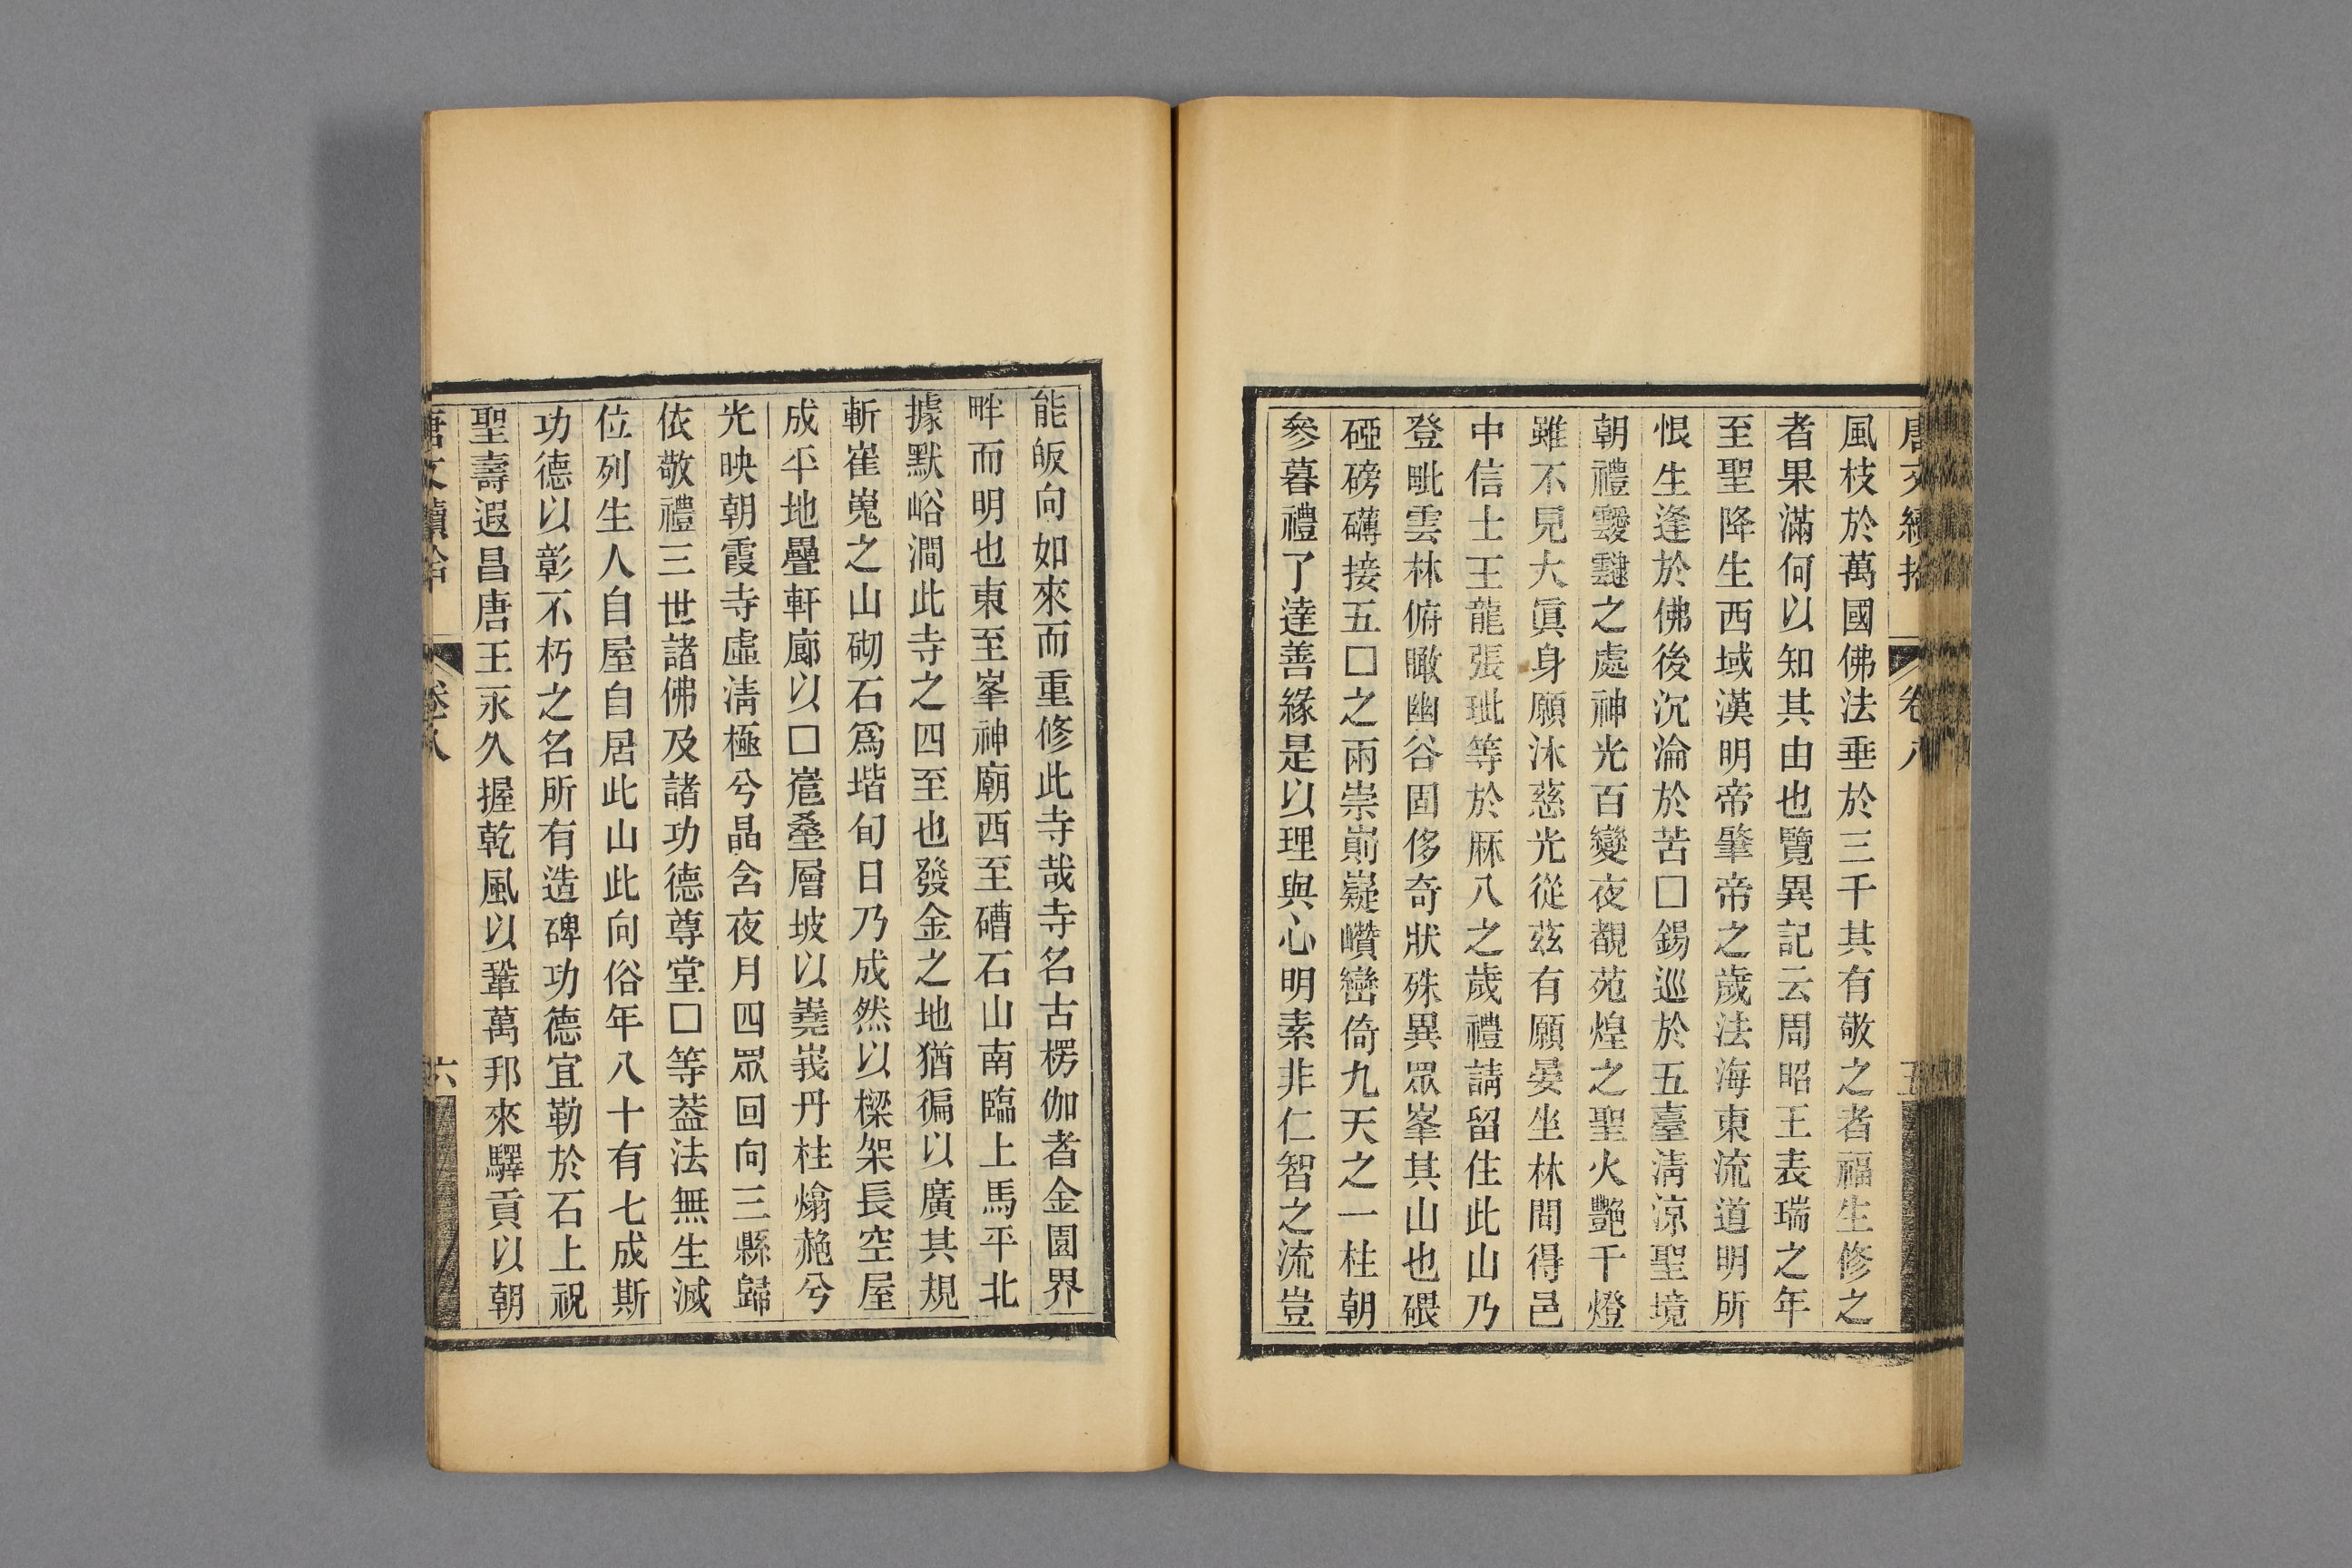 唐文續拾 卷八 五
風枝於萬國佛法垂於三千其有敬之者福生修之
者果滿何以知其由也覽異記云周昭王表瑞之年
至聖降生西域漢明帝肇帝之歲法海東流道明所
恨生逢於佛後沉淪於苦□錫巡於五臺淸涼聖境
朝禮靉靆之處神光百變夜覩苑煌之聖火艷千燈
雖不見大眞身願沐慈光從茲有願晏坐林間得邑
中信士王龍張玼等於厤八之歲禮請留住此山乃
登毗雲林俯瞰幽谷固侈奇狀殊異眾峯其山也碨
磴磅礴接五□之兩崇崱嶷巑巒倚九天之一柱朝
參暮禮了達善緣是以理與心明素非仁智之流豈
能皈向如來而重修此寺哉寺名古楞伽者金園界
畔而明也東至峯神廟西至磽石山南臨上馬平北
據默峪澗此寺之四至也發金之地猶徧以廣其規
斬崔嵬之山砌石爲堦旬日乃成然以樑架長空屋
成平地疊軒廊以□嵬壘層坡以嶤峩丹柱熻赩兮
光映朝霞寺虛淸極兮晶含夜月四眾回向三縣歸
依敬禮三世諸佛及諸功德尊堂□等葢法無生滅
位列生人自屋自居此山此向俗年八十有七成斯
功德以彰不朽之名所有造碑功德宜勒於石上祝
聖壽遐昌唐王永久握乾風以鞏萬邦來驛貢以朝
唐文續拾 卷八 六